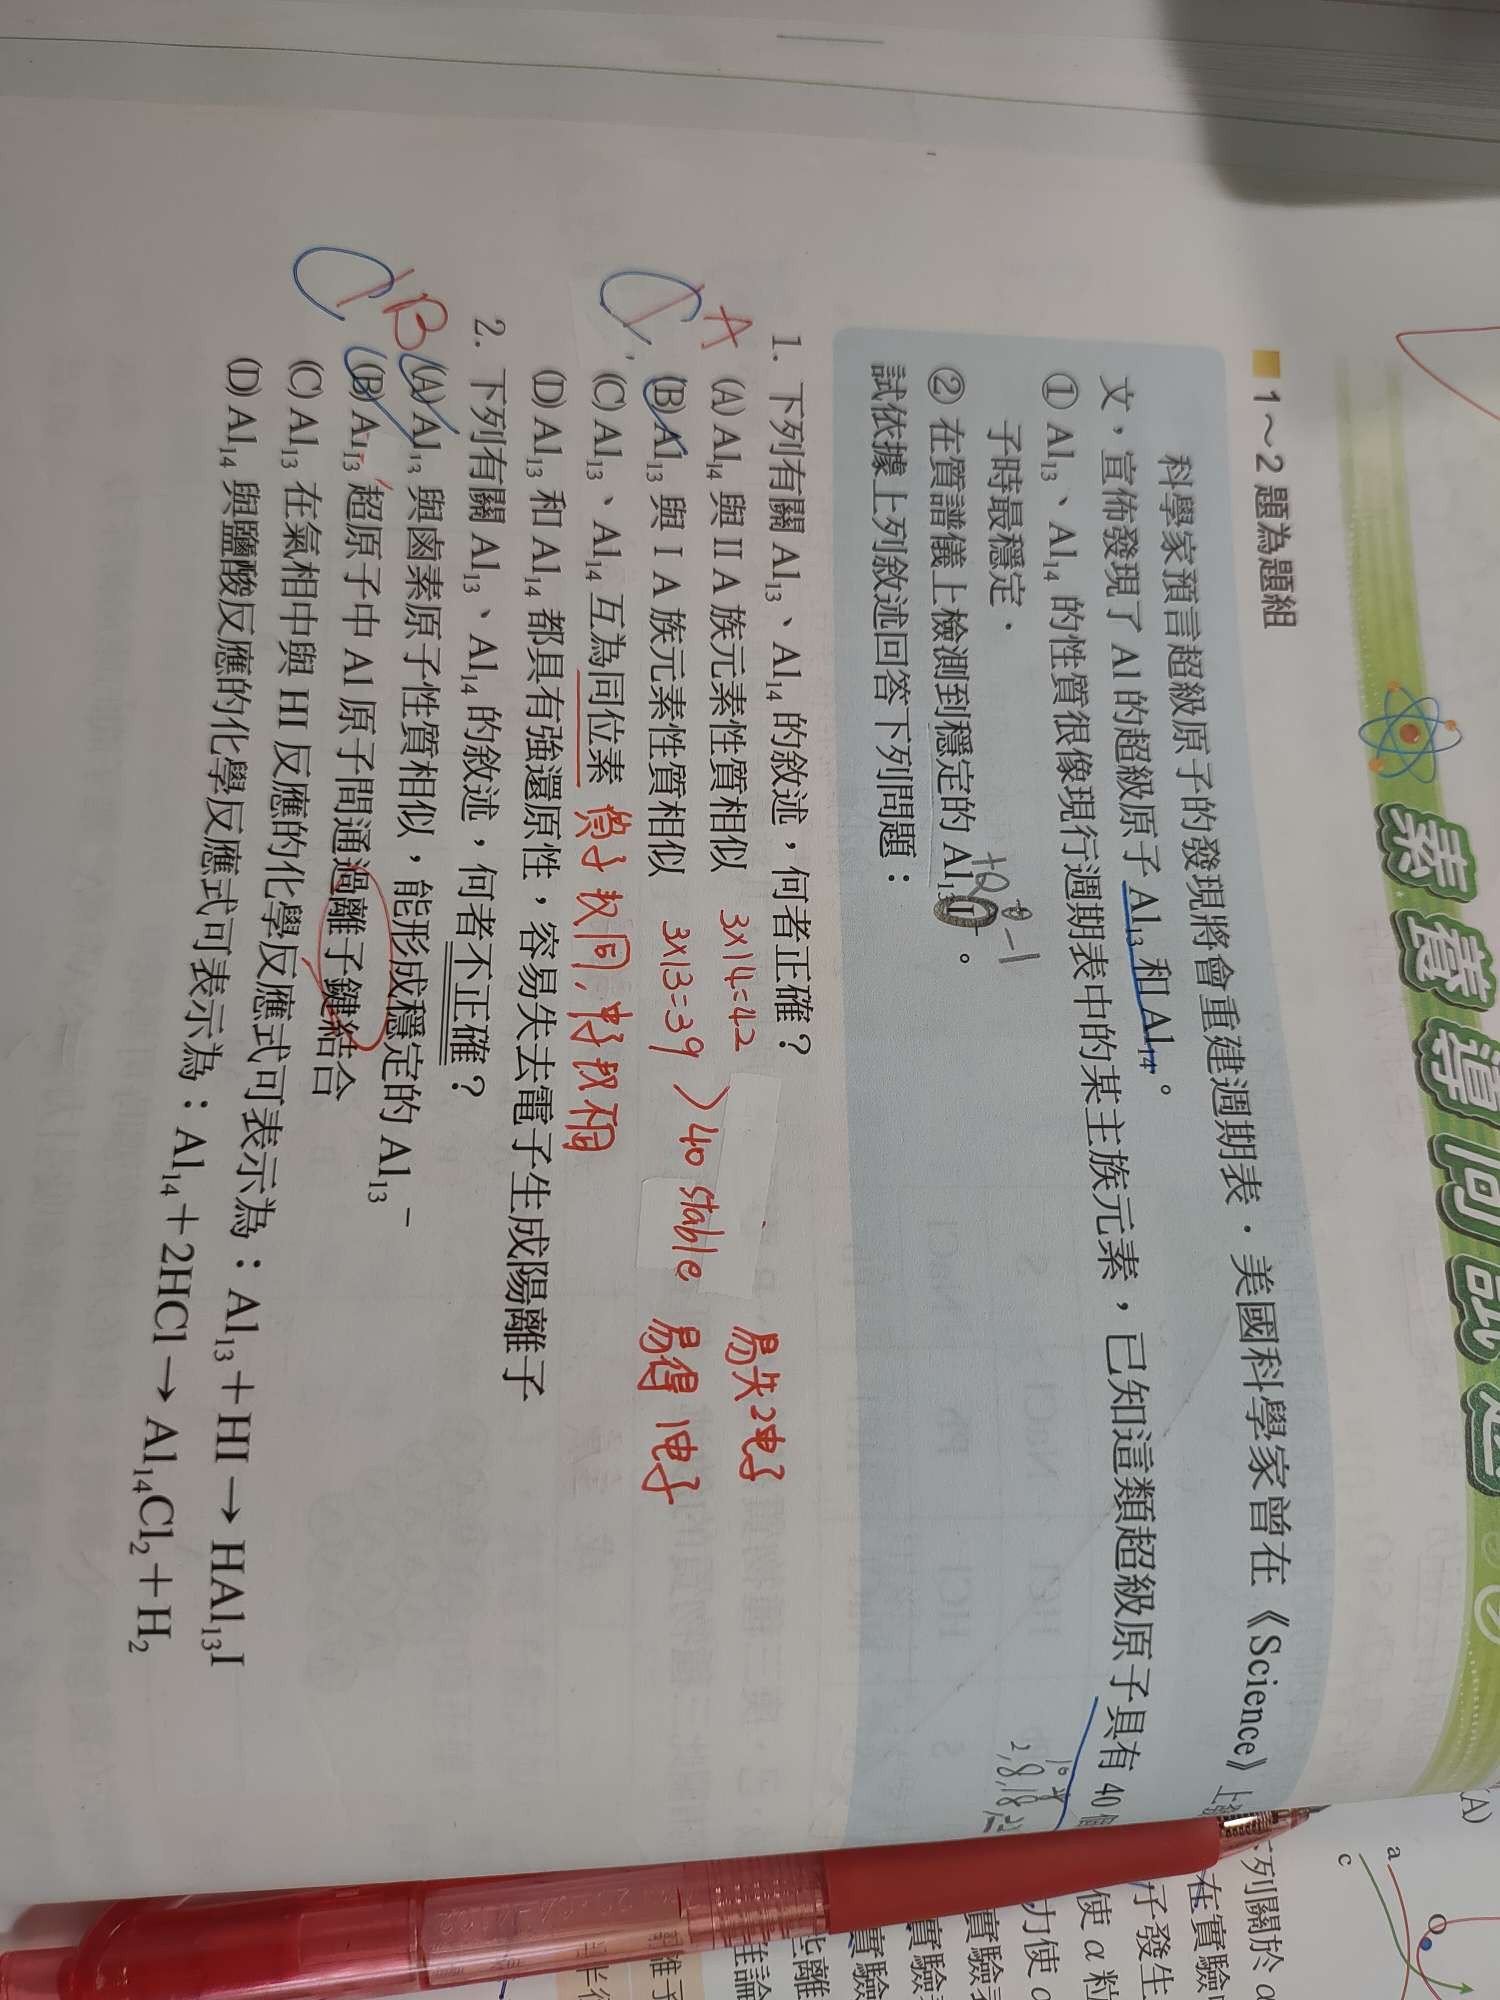 素養導向試題
■ 1～2 題為題組
科學家預言超級原子的發現將會重建週期表．美國科學家曾在《Science》上
文，宣佈發現了 Al 的超級原子 Al₁₃ 和 Al₁₄。
① Al₁₃、Al₁₄ 的性質很像現行週期表中的某主族元素，已知這類超級原子具有 40 個
子時最穩定．
2,8,18,
② 在質譜儀上檢測到穩定的 Al₁₃
試依據上列敘述回答下列問題：
1. 下列有關 Al₁₃、Al₁₄ 的敘述，何者正確？
A
(A) Al₁₄ 與 II A 族元素性質相似 3×14=42 易失2電子
(B) Al₁₃ 與 I A 族元素性質相似 3×13=39 >40 stable 易得1電子
(C) Al₁₃、Al₁₄ 互為同位素 質子數同,中子數不同
(D) Al₁₃ 和 Al₁₄ 都具有強還原性，容易失去電子生成陽離子
2. 下列有關 Al₁₃、Al₁₄ 的敘述，何者不正確？
B
(A) Al₁₃ 與鹵素原子性質相似，能形成穩定的 Al₁₃⁻
(B) Al₁₃ 超原子中 Al 原子間通過離子鍵結合
(C) Al₁₃ 在氣相中與 HI 反應的化學反應式可表示為：Al₁₃＋HI → HAl₁₃I
(D) Al₁₄ 與鹽酸反應的化學反應式可表示為：Al₁₄＋2HCl → Al₁₄Cl₂＋H₂
(A)
a
c
列關於 α
在實驗
子發生
使 α 粒
力使 α
實驗
實驗
實驗